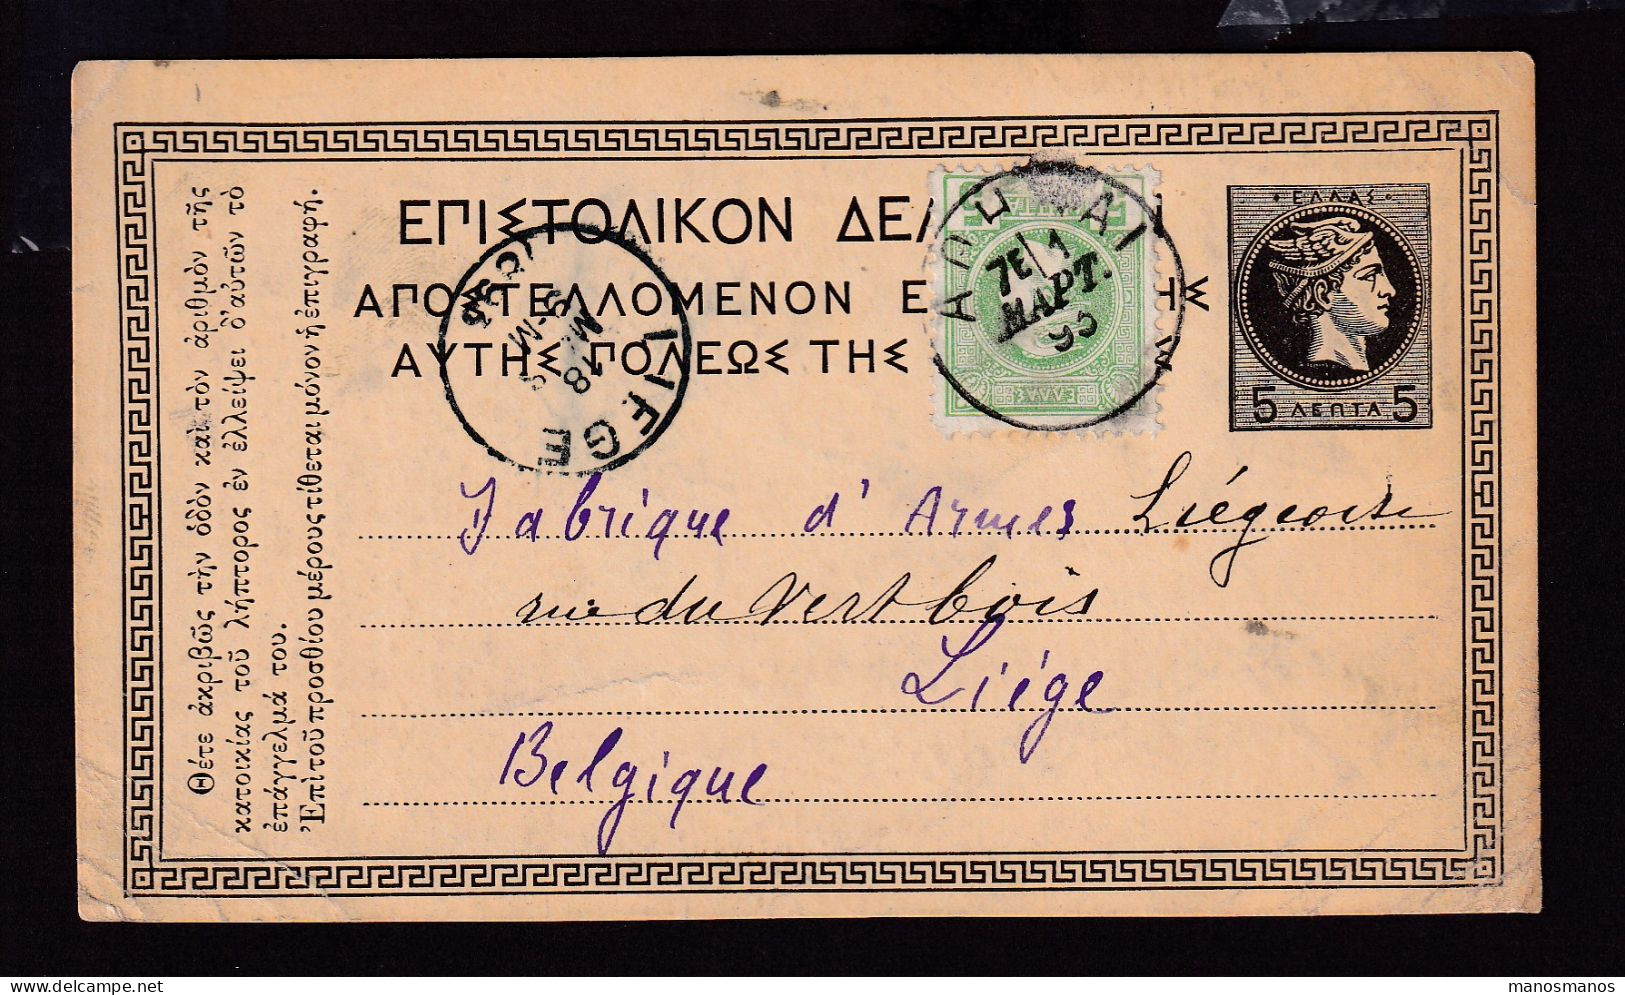 ΕΠΙΣΤΟΛΙΚΟΝ ΔΕΛ
ΑΠΟΣΤΕΛΛΟΜΕΝΟΝ Ε ΗΣ
ΑΥΤΗΣ ΠΟΛΕΩΣ ΤΗΣ
ΕΛΛΑΣ
5 ΛΕΠΤΑ 5
ΑΘΗ ΑΙ
ΜΑΡΤ.
ΕΛΛΑΣ
LIEGE
Fabrique d' Armes Liégeoise
rue du Vertbois
Liége
Belgique
Θέτε ἀκριβῶς τὴν ὁδὸν καὶ τὸν ἀριθμὸν τῆς
κατοικίας τοῦ λήπτορος ἐν ἐλλείψει δ'αὐτῶν τὸ
ἐπάγγελμά του.
Ἐπὶ τοῦ προσθίου μέρους τίθεται μόνον ἡ ἐπιγραφή.
manosmanos